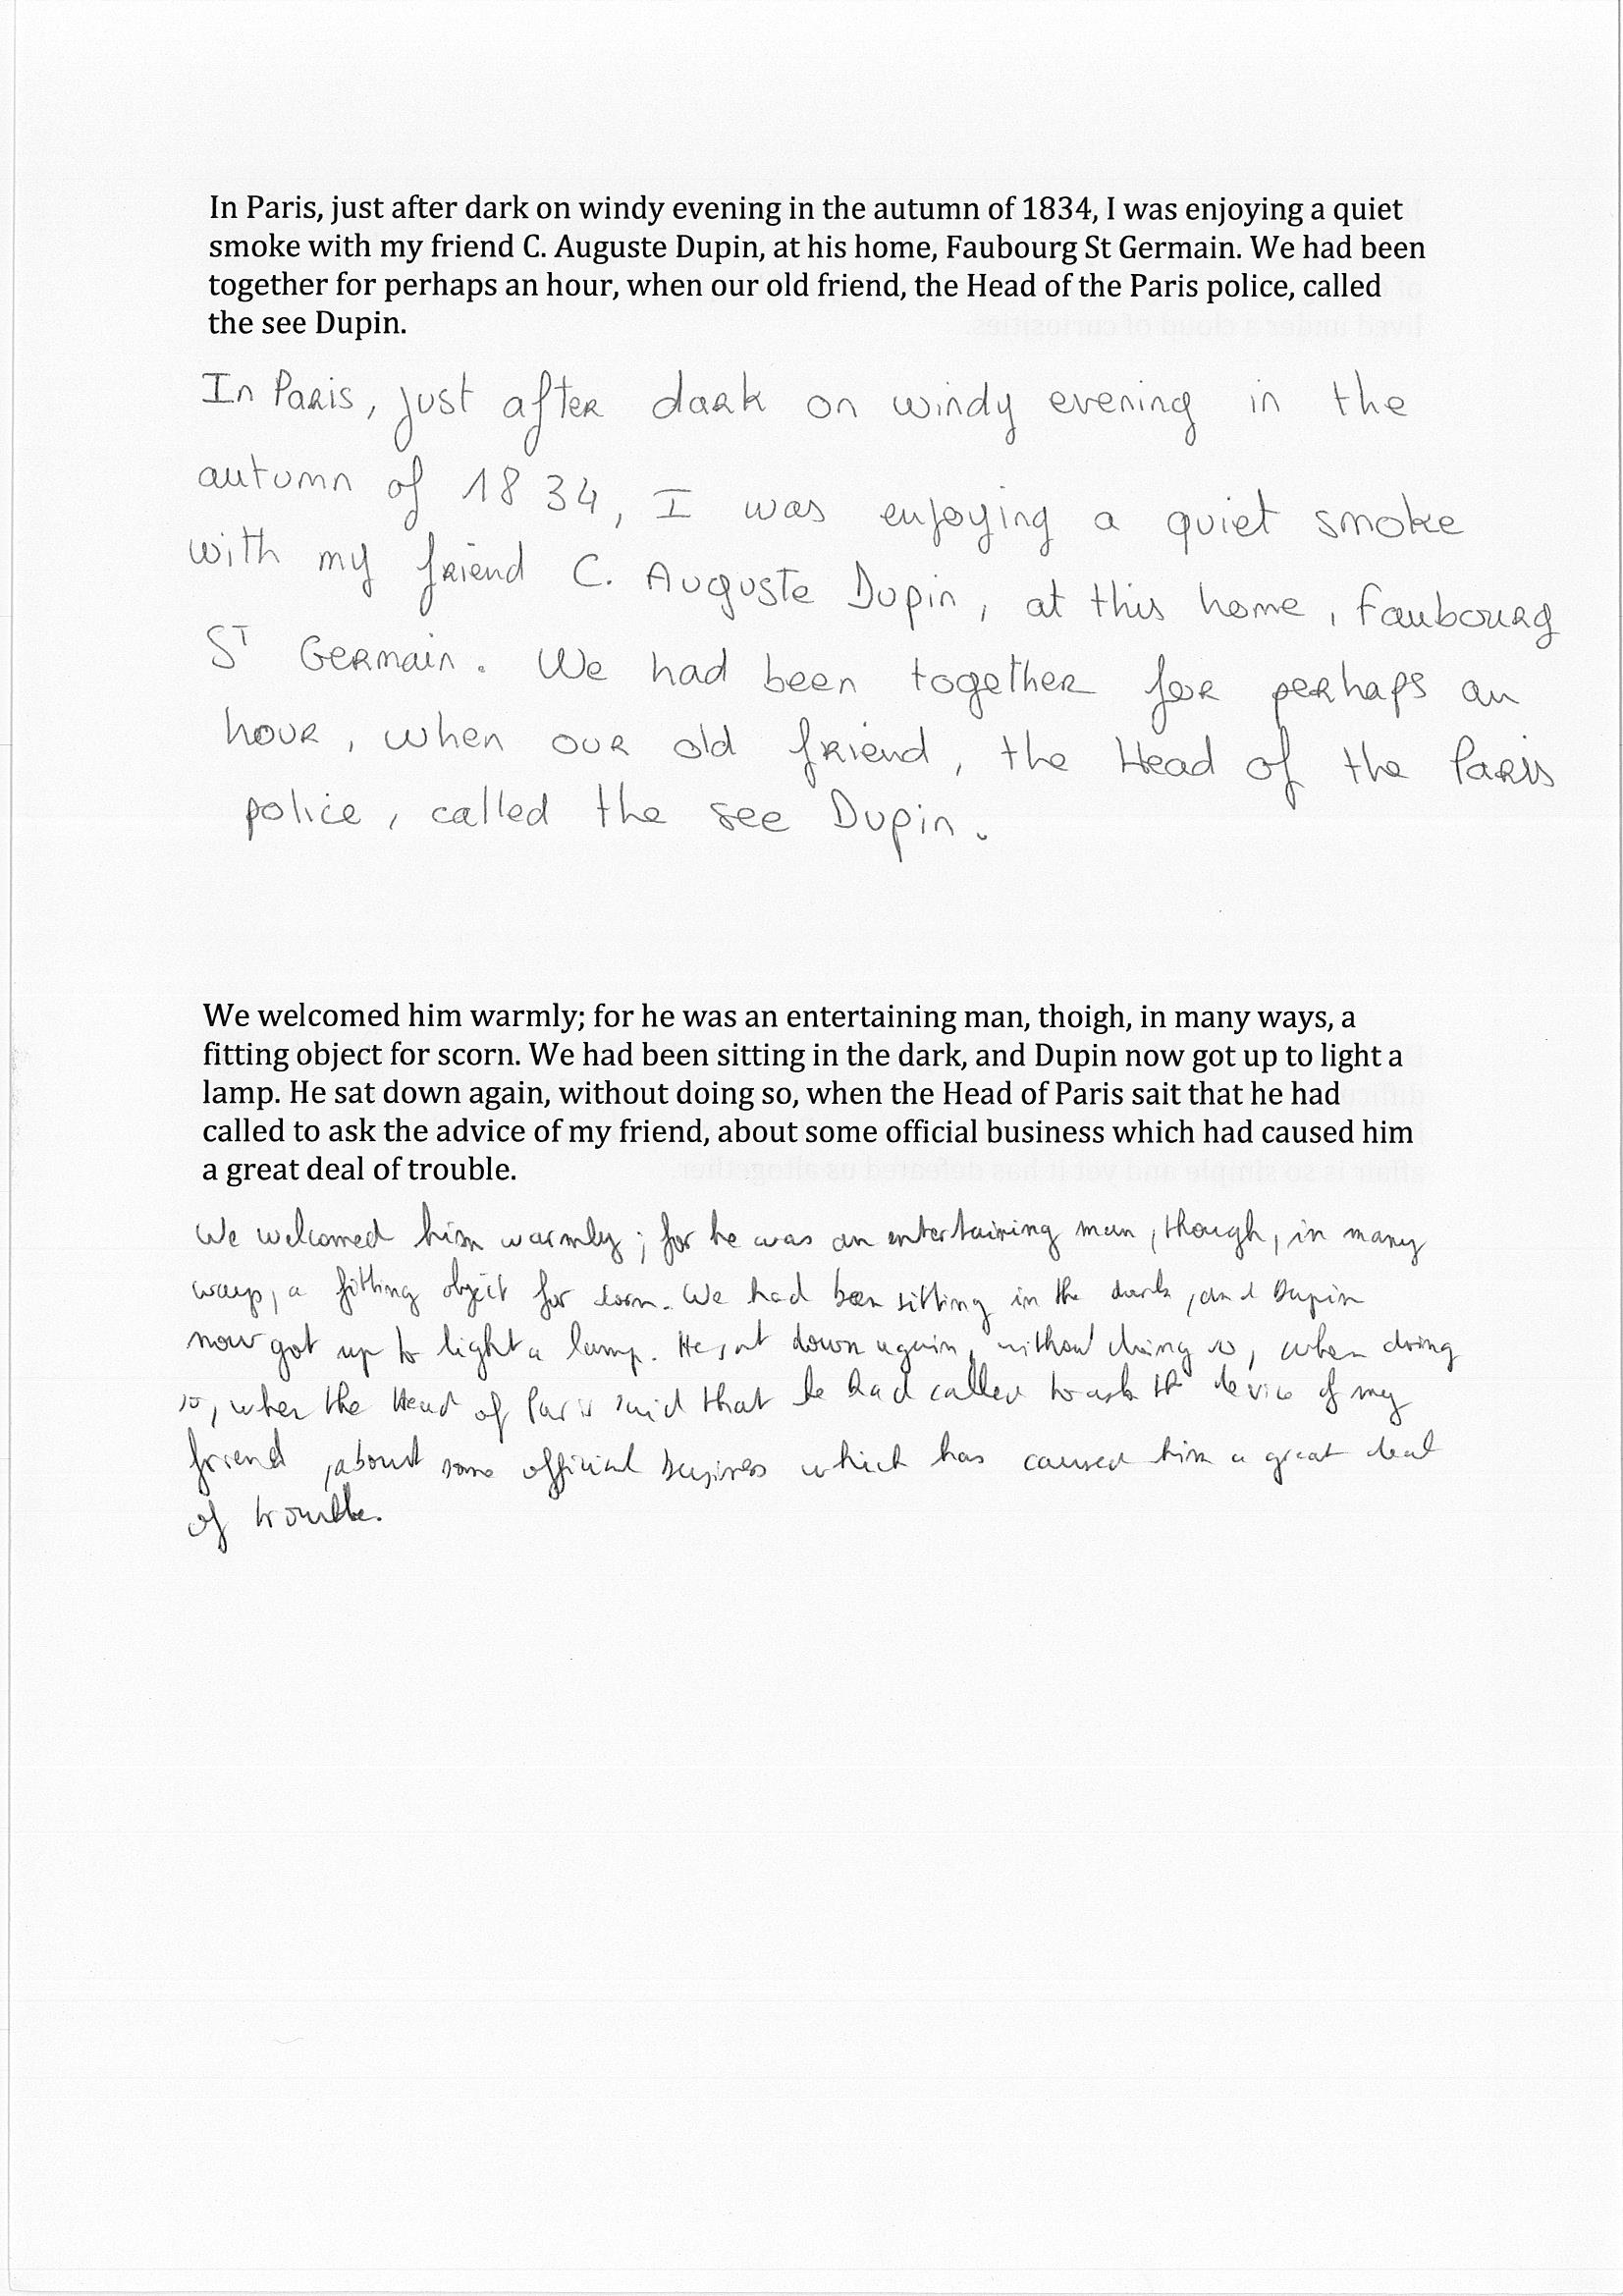 In Paris, just after dark on windy evening in the autumn of 1834, I was enjoying a quiet
smoke with my friend C. Auguste Dupin, at his home, Faubourg St Germain. We had been
together for perhaps an hour, when our old friend, the Head of the Paris police, called
the see Dupin.
In Paris, just after dark on windy evening in the
autumn of 1834, I was enjoying a quiet smoke
with my friend C. Auguste Dupin, at this home, Faubourg
ST Germain. We had been together for perhaps an
hour, when our old friend, the Head of the Paris
police, called the see Dupin.
We welcomed him warmly; for he was an entertaining man, thoigh, in many ways, a
fitting object for scorn. We had been sitting in the dark, and Dupin now got up to light a
lamp. He sat down again, without doing so, when the Head of Paris sait that he had
called to ask the advice of my friend, about some official business which had caused him
a great deal of trouble.
We welcomed him warmly; for he was an entertaining man, though, in many
ways, a fitting object for scorn. We had been sitting in the dark, and Dupin
now got up to light a lamp. He sat down again, without doing so, when doing
so, when the Head of Paris said that he had called to ask the device of my
friend, about some official business which has caused him a great deal
of trouble.